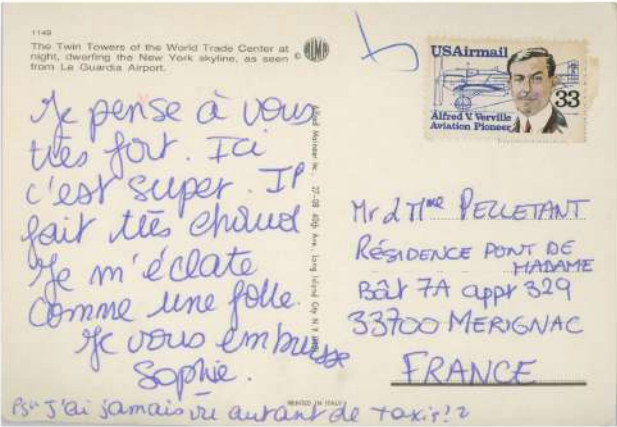 1149
The Twin Towers of the World Trade Center at
night, dwarfing the New York skyline, as seen
from La Guardia Airport.
©
USAirmail
33
Alfred V. Verville
Aviation Pioneer
Je pense à vous
très fort. Ici
c'est super. Il
fait très chaud
Je m'éclate
comme une folle.
Je vous embrasse
Sophie.
Ps: J'ai jamais vu autant de taxis!!
Alfred Mainzer Inc., 27-08 40th Ave., Long Island City N.Y.
PRINTED IN ITALY
Mr & Mme PELLETANT
RÉSIDENCE PONT DE
MADAME
Bât 7A appt 329
33700 MERIGNAC
FRANCE